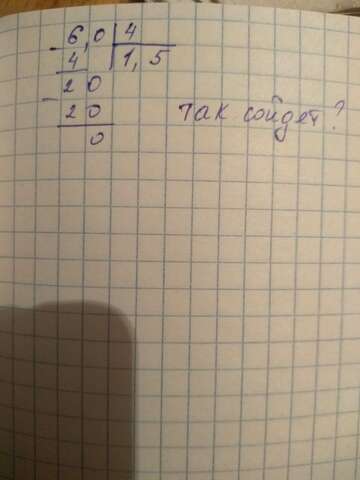 6,0 4
4 1,5
20
20 так сойдет?
0